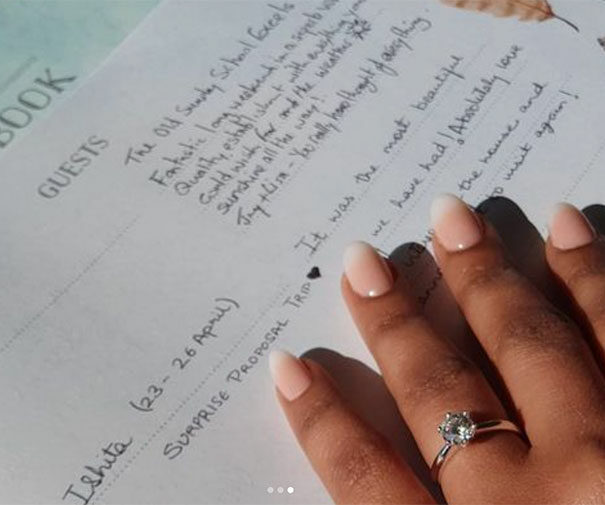 BOOK
GUESTS
The Old Sunday School Exceeds
Fantastic long weekend in a superb
Quality, establishment with everything you
could wish for and the weather
sunshine all the way!
You really have thought of everything.
Ishita (23 - 26 April)
SURPRISE PROPOSAL TRIP
It was the most beautiful
we have had! Absolutely love
the house and
visit again!